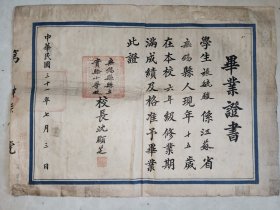 畢業證書
學生 係江蘇省
無錫縣人現年十五歲
在本校六年級修業期
滿成績及格准予畢業
此證
校長沈顯芝
中華民國三十一年七月三日
第 號